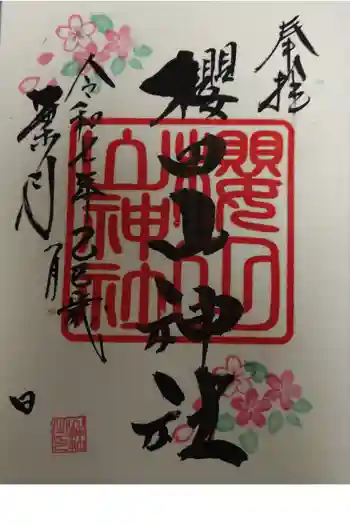 奉拝
櫻田山神社
令和七年乙巳歳
葉月
日